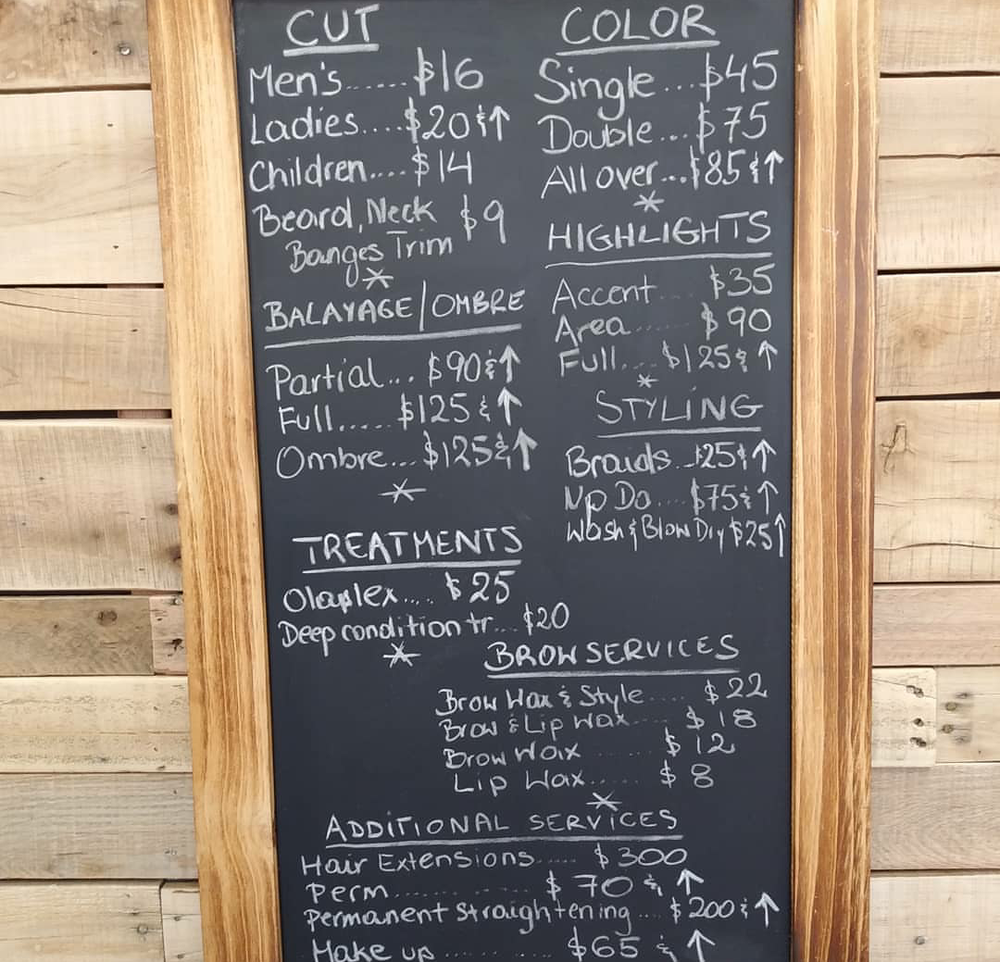 CUT
Men's...... $16
Ladies.... $20 & ↑
Children.... $14
Beard, Neck $9
Banges Trim
*
BALAYAGE/OMBRE
Partial... $90 & ↑
Full..... $125 & ↑
Ombre... $125 & ↑
*
TREATMENTS
Olaplex.... $25
Deep condition tr... $20
*
COLOR
Single... $45
Double... $75
All over... $85 & ↑
*
HIGHLIGHTS
Accent.... $35
Area...... $90
Full.... $125 & ↑
*
STYLING
Braids... $25 & ↑
Up Do.... $75 & ↑
Wash & Blow Dry $25 ↑
BROW SERVICES
Brow Wax & Style .... $22
Brow & Lip Wax .... $18
Brow Wax ...... $12
Lip Wax..... $8
*
ADDITIONAL SERVICES
Hair Extensions..... $300
Perm............ $70 & ↑
Permanent Straightening .... $200 & ↑
Make up ........... $65 & ↑